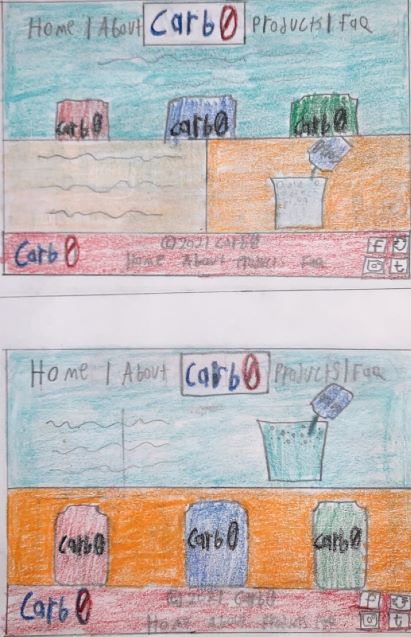 Home | About Carb0 Products | Faq
Carb0 Carb0 Carb0
Carb0
© 2021 Carb0
Home About Products Faq
f
t
Home | About Carb0 Products | Faq
Carb0 Carb0 Carb0
Carb0
© 2021 Carb0
Home About Products Faq
f
t